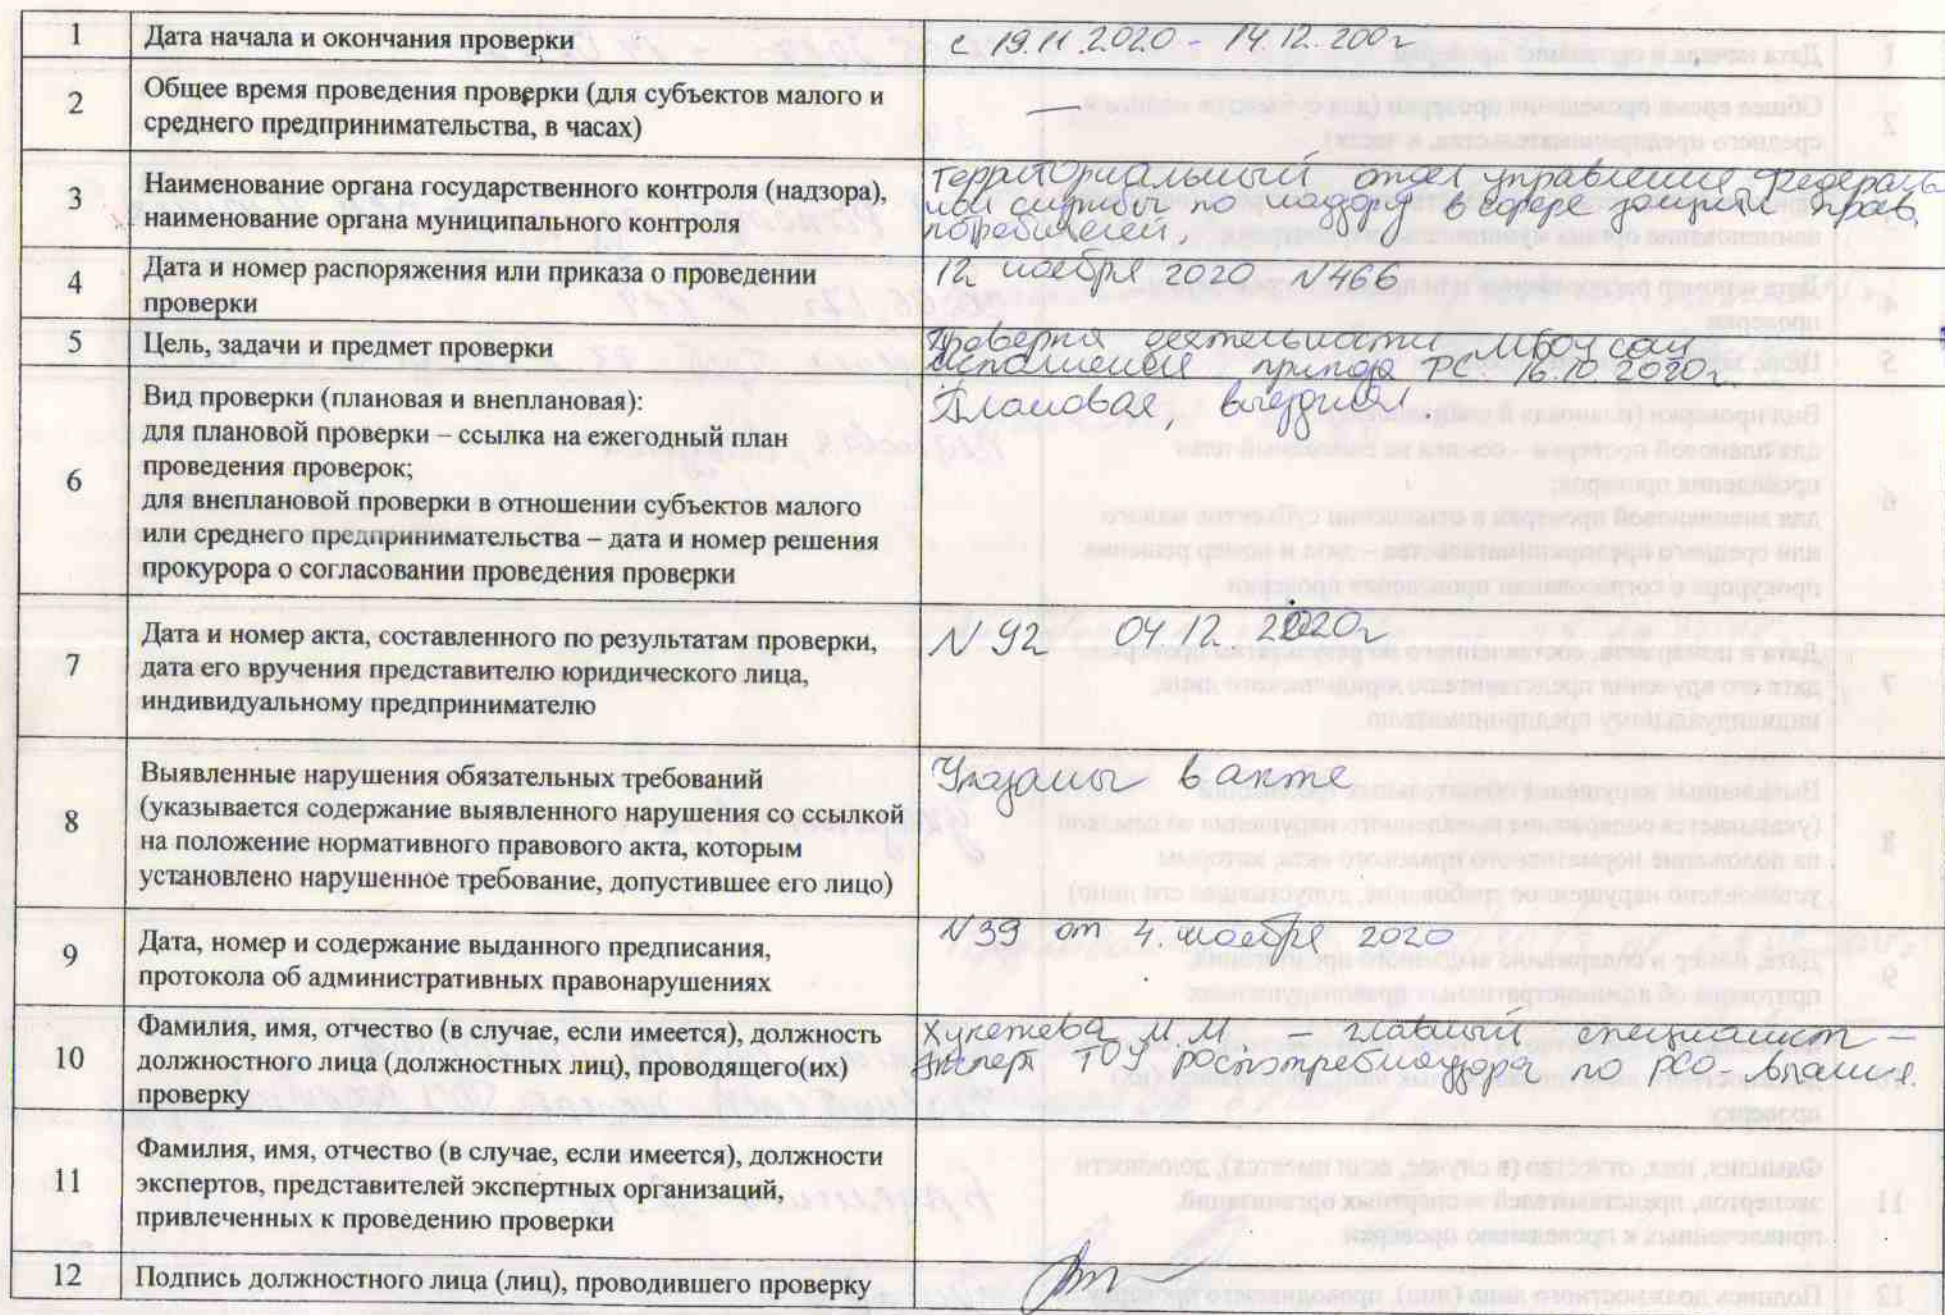 1 Дата начала и окончания проверки с 19.11.2020 - 14.12.200г
2 Общее время проведения проверки (для субъектов малого и
среднего предпринимательства, в часах) —
3 Наименование органа государственного контроля (надзора),
наименование органа муниципального контроля
Территориальный отдел управления Федераль
ной службы по надзору в сфере защиты прав
потребителей,
4 Дата и номер распоряжения или приказа о проведении
проверки
12 ноября 2020 N466
5 Цель, задачи и предмет проверки
Проверка деятельности МБОУ сош
исполнения приказа РС 16.10.2020г.
6 Вид проверки (плановая и внеплановая):
для плановой проверки – ссылка на ежегодный план
проведения проверок;
для внеплановой проверки в отношении субъектов малого
или среднего предпринимательства – дата и номер решения
прокурора о согласовании проведения проверки
Плановая, выездная.
7 Дата и номер акта, составленного по результатам проверки,
дата его вручения представителю юридического лица,
индивидуальному предпринимателю
N 92 04 12 2020г
8 Выявленные нарушения обязательных требований
(указывается содержание выявленного нарушения со ссылкой
на положение нормативного правового акта, которым
установлено нарушенное требование, допустившее его лицо)
Указаны в акте
9 Дата, номер и содержание выданного предписания,
протокола об административных правонарушениях
N39 от 4. ноября 2020
10 Фамилия, имя, отчество (в случае, если имеется), должность
должностного лица (должностных лиц), проводящего(их)
проверку
М.М – главный специалист –
эксперт ТОУ роспотребнадзора по РСО-Алания.
11 Фамилия, имя, отчество (в случае, если имеется), должности
экспертов, представителей экспертных организаций,
привлеченных к проведению проверки
12 Подпись должностного лица (лиц), проводившего проверку